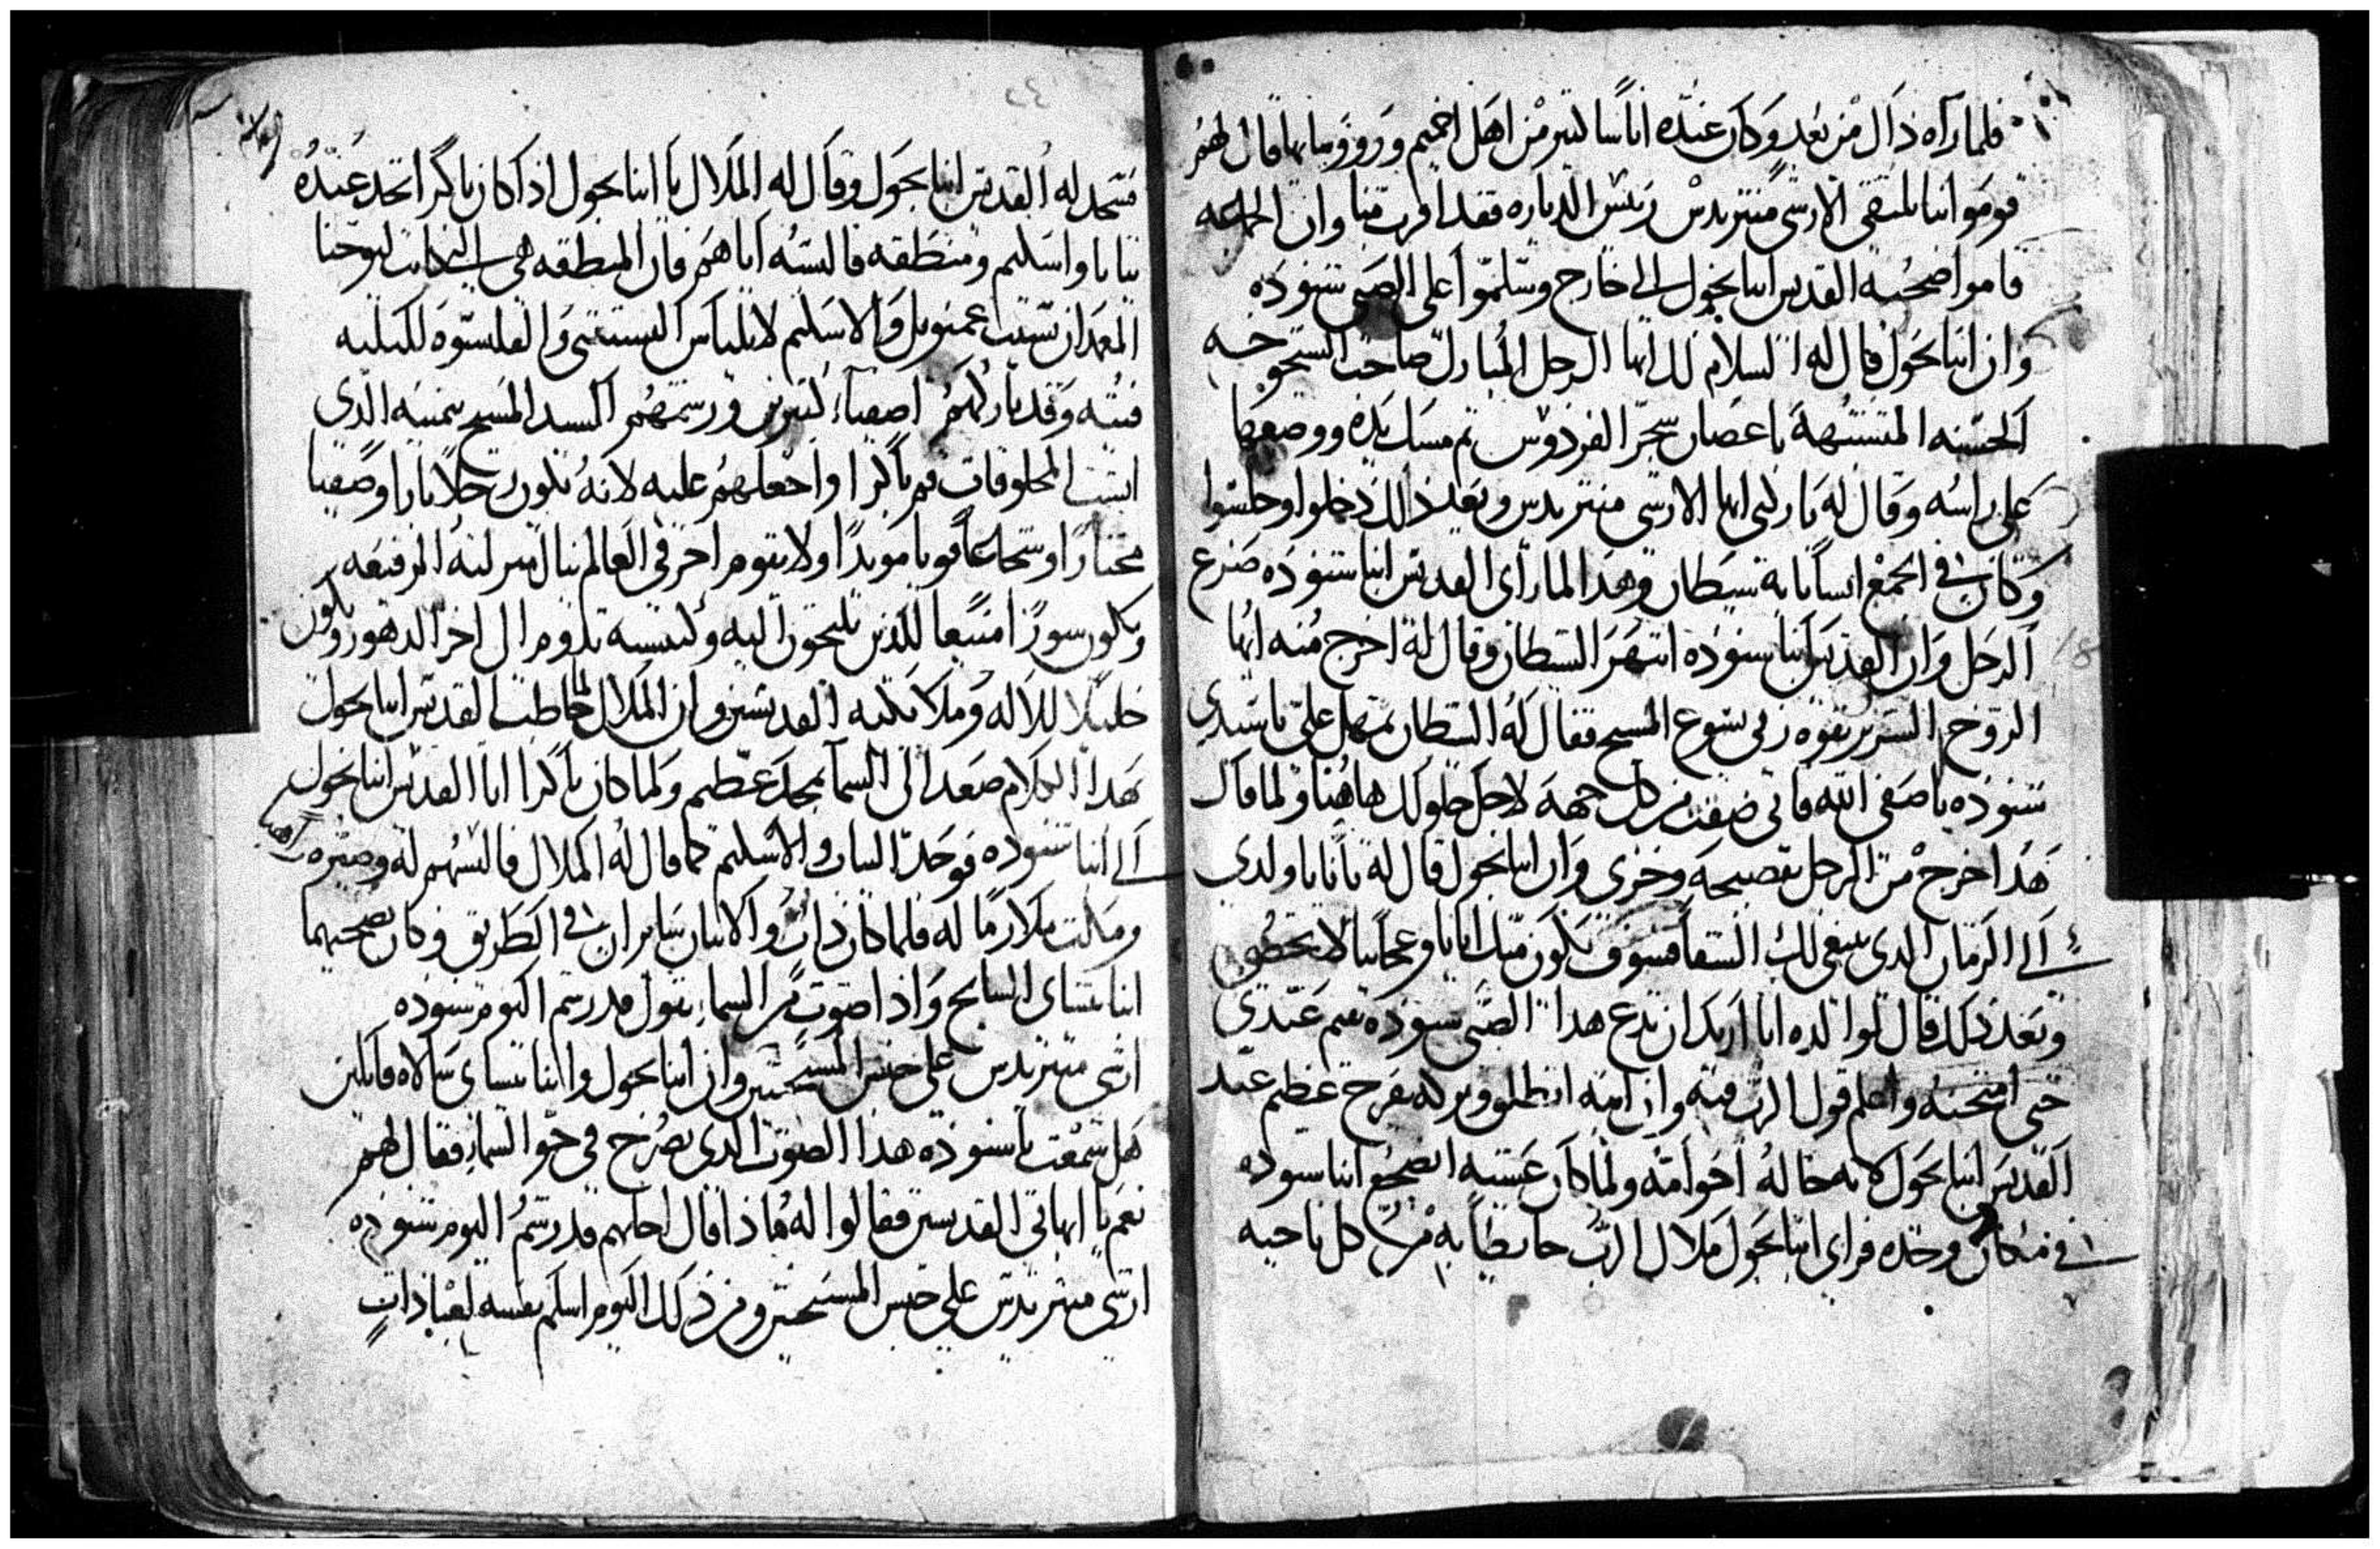 فلما رآه ذاك من بعد وكان عنده اناسا كتير من اهل اخميم وروو سابها قال لهم
قوموا بنا نلتقى الارشى منتريدس رئيس الدياره فقد اقرب منا وان الجماعه
قاموا صحبه القديس انبا بجول الى خارج وسلموا على الصبى شنوده
وان انبا بجول قال له السلام لك ايها الرجل المبارك صاحب الشيخوخه
الحسنه المتشبهة باغصان شجر الفردوس تم مسك يده ووضعها
على راسه وقال له باركنى ايها الارشى منتريدس وبعد ذلك دخلوا وجلسوا
وكان فى الجمع انسانا به شيطان وهذا لما رأى القديس انبا شنوده صرع
الرجل وان القديس انبا شنوده انتهر الشيطان وقال له اخرج منه ايها
الروح الشرير بقوه ربى يسوع المسيح فقال له الشيطان تمهل على يا سيدى
شنوده يا صفى الله فانى ضقت من كل جهه لاجل حلولك هاهنا ولما قال
هذا خرج من الرجل بفضيحه وخزى وان انبا بجول قال له تانا يا ولدى
الى الزمان الدى ينبغى لك الشفا فسوف يكون منك اياتا وعجايبا لا تحصى
وبعد ذلك قال لوالده انا اريد ان تدع هدا الصبى شنوده يقيم عندى
حتى امتحنه واعلم قول الرب فيه وان ابيه انطلق وتركه بفرح عظيم عند
القديس انبا بجول لانه خاله اخو امه ولما كان عشيه اضجع انبا شنوده
فى مكان وحده فراى انبا بجول ملاك الرب حايطا به من كل ناحيه
فسجد له القديس انبا بجول وقال له الملاك يا انبا بجول اذا كان باكرا تجد عنده
تيابا واسكيم ومنطقه فالبسه اياهم فان المنطقه هى التى كانت ليوحنا
المعمدان نسيب عمنويل والاسكيم لايلياس التسبيتى والقلنسوه لاليليه
فيه وقد باركهم اصفياء كتيرين ورسمهم السيد المسيح بيمينه الدى
ابتت المخلوقات قم باكرا واجعلهم عليه لانه يكون رجلا بارا وصفيا
مختارا وشجاعا قويا مويدا ولا يقوم اخر فى العالم ينال منزلته الرفيعه
ويكون سورا منيعا للذين يلتجون اليه وكنيسته تدوم الى اخر الدهور ويكون
خليلا للاله وملايكته القديسين وان الملاك لما خاطب القديس انبا بجول
هذا الكلام صعد الى السما بمجد عظيم ولما كان باكرا اتا القديس انبا بجول
الى انبا شنوده فوجد التياب والاسكيم كما قال له الملاك فالبسهم له وصيره راهبا
ومكت ملازما له فلما كان ذات والاتنان سايران فى الطريق وكان بصحبتهما
انبا بشاى السايح واذا صوت من السماء يقول قد رسم اليوم شنوده
ارشى منتريدس على جنس المسيحيين وان انبا بجول وانبا بشاى سالاه قايلين
هل سمعت يا شنوده هذا الصوت الدى يصرخ فى جو السماء فقال لهم
نعم يا ابهاتى القديسين فقالوا له ماذا قال اجابهم قد رسم اليوم شنوده
ارشى منتريدس على جنس المسيحيين ومن ذلك اليوم اسلم نفسه لعبادات